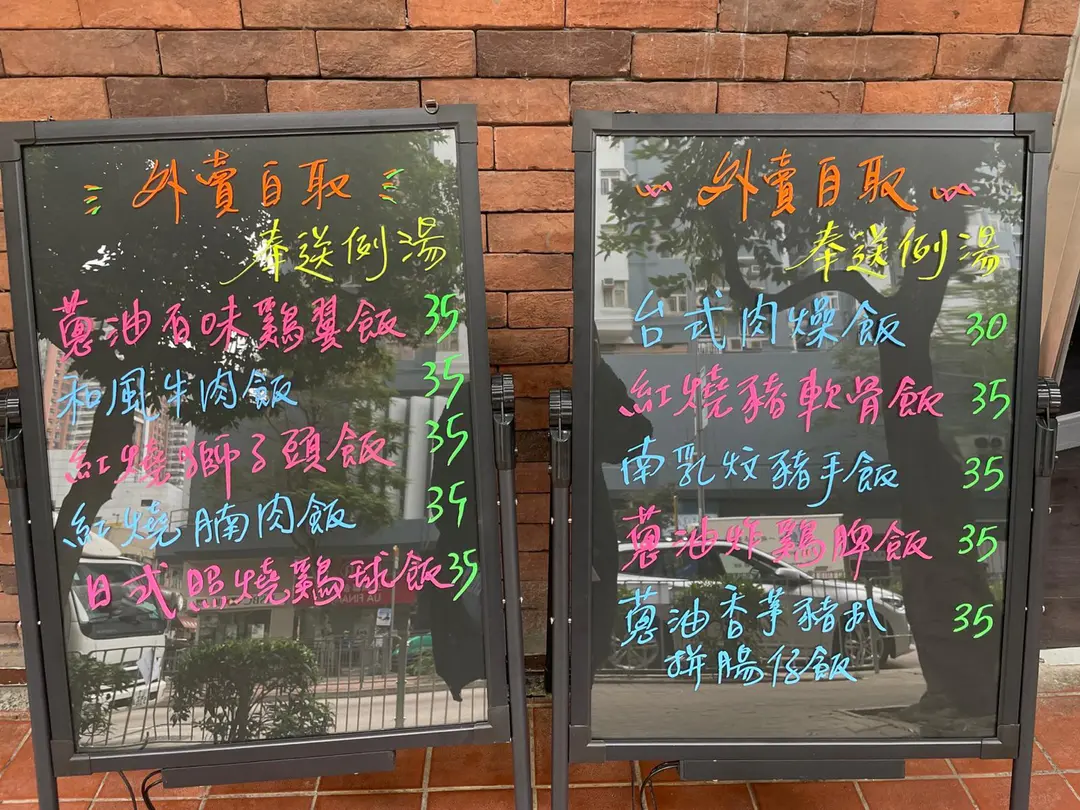 外賣自取
奉送例湯
蔥油百味鷄翼飯 35
和風牛肉飯 35
紅燒獅子頭飯 35
紅燒腩肉飯 35
日式照燒鷄球飯 35
外賣自取
奉送例湯
台式肉燥飯 30
紅燒豬軟骨飯 35
南乳炆豬手飯 35
蔥油炸鷄脾飯 35
蔥油香茅豬扒 35
拼腸仔飯